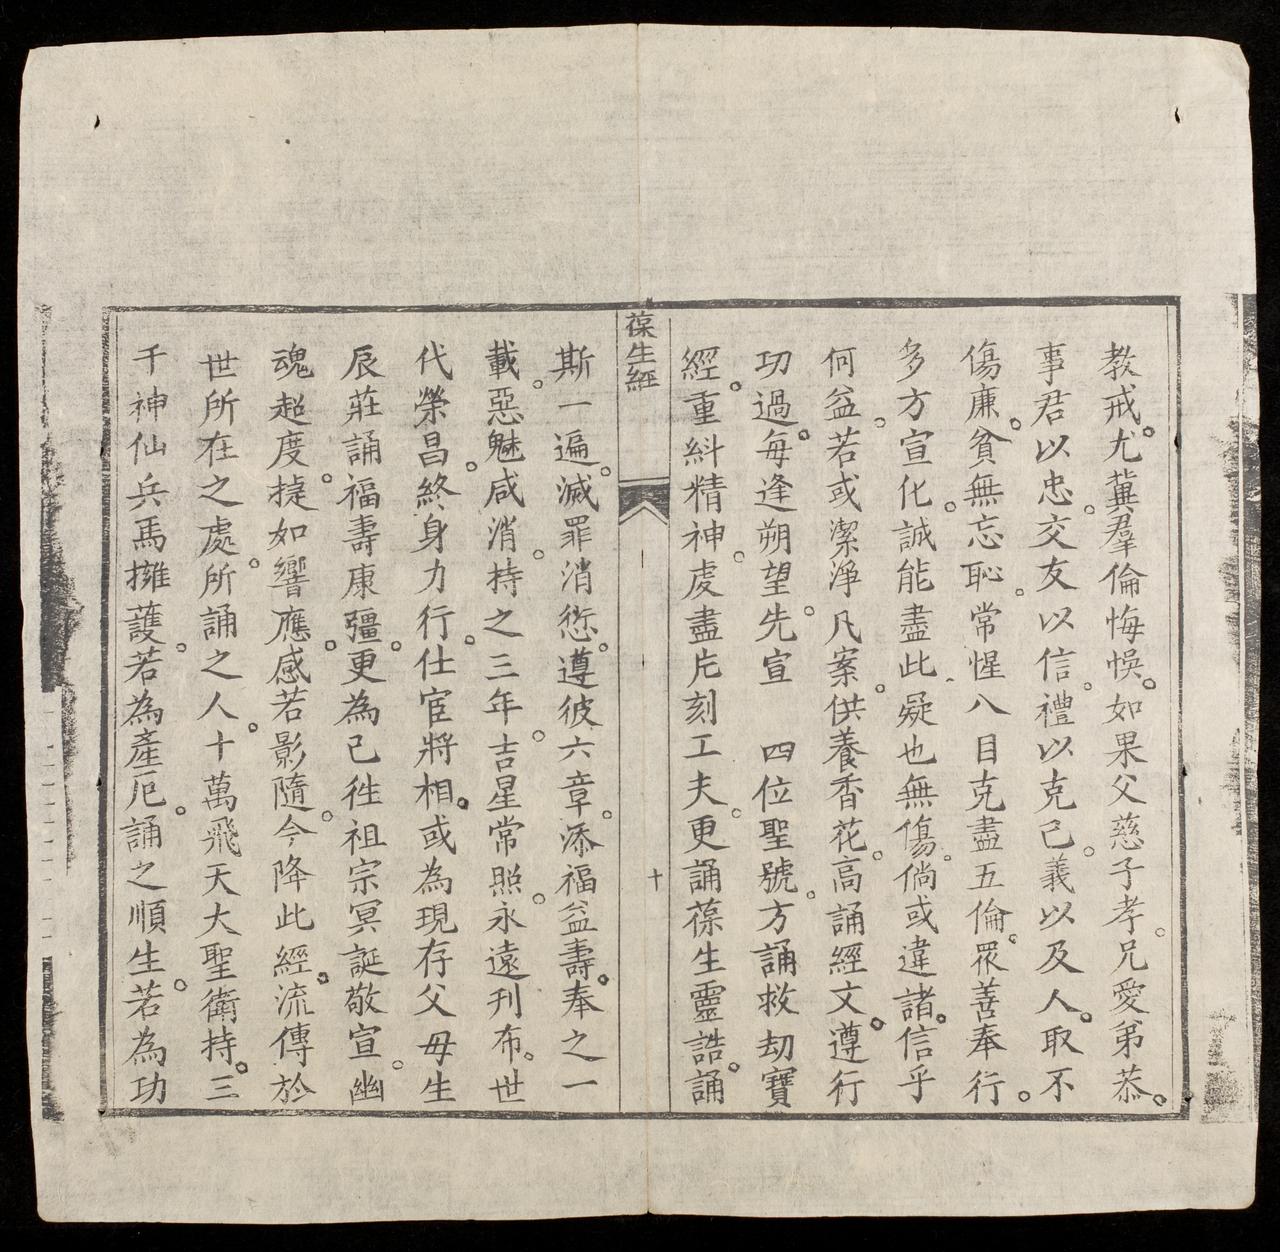 教戒。尤冀羣倫悔悞。如果父慈子孝。兄愛弟恭。
事君以忠。交友以信。禮以克己。義以及人。取不
傷廉。貧無忘恥。常惺八目克盡五倫。眾善奉行。
多方宣化。誠能盡此。疑也無傷。倘或違諸。信乎
何益。若或潔淨凡案。供養香花。高誦經文。遵行
功過。每逢朔望。先宣 四位聖號。方誦救劫寶
經。重糾精神。虔盡片刻工夫。更誦葆生靈誥。誦
葆生經
十
斯一遍。滅罪消愆。遵彼六章。添福益壽。奉之一
載。惡魅咸消。持之三年。吉星常照。永遠刊布。世
代榮昌。終身力行。仕宦將相。或為現存父母生
辰莊誦福壽康彊。更為已徃祖宗冥誕敬宣。幽
魂超度。㨗如響應。感若影隨。今降此經。流傳於
世所在之處。所誦之人。十萬飛天大聖衛持。三
千神仙兵馬擁護。若為產厄。誦之順生。若為功